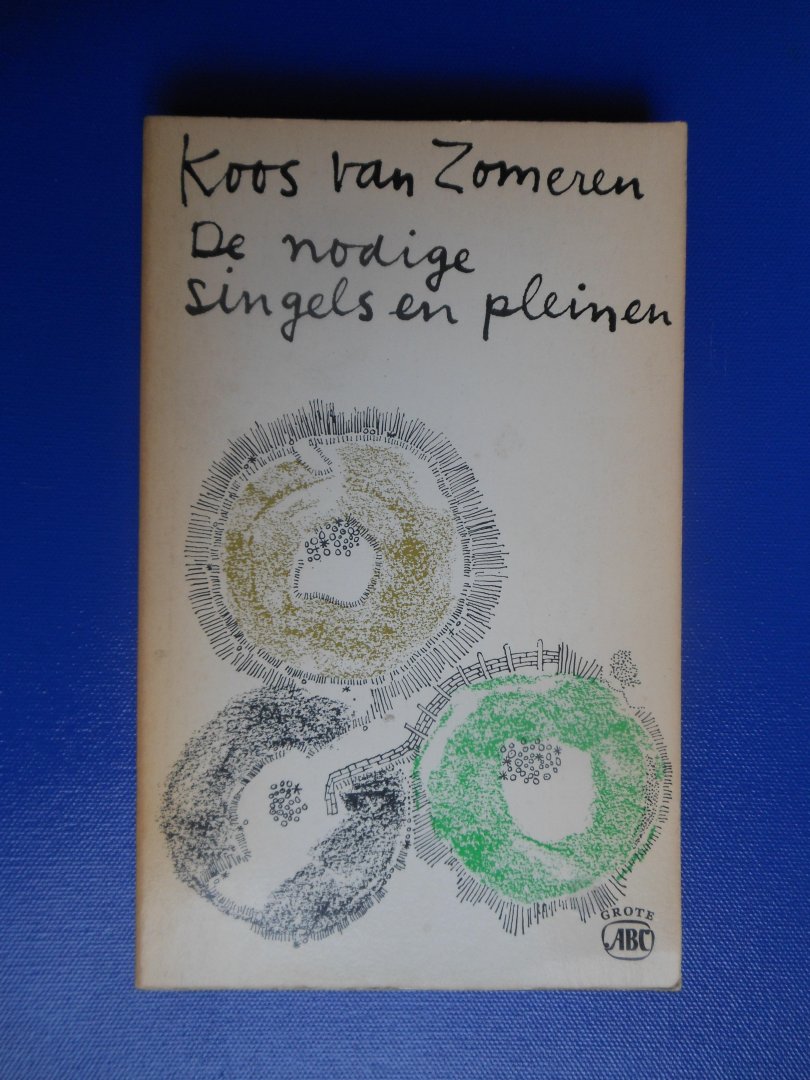 Koos van Zomeren
De nodige
singels en pleinen
GROTE
ABC